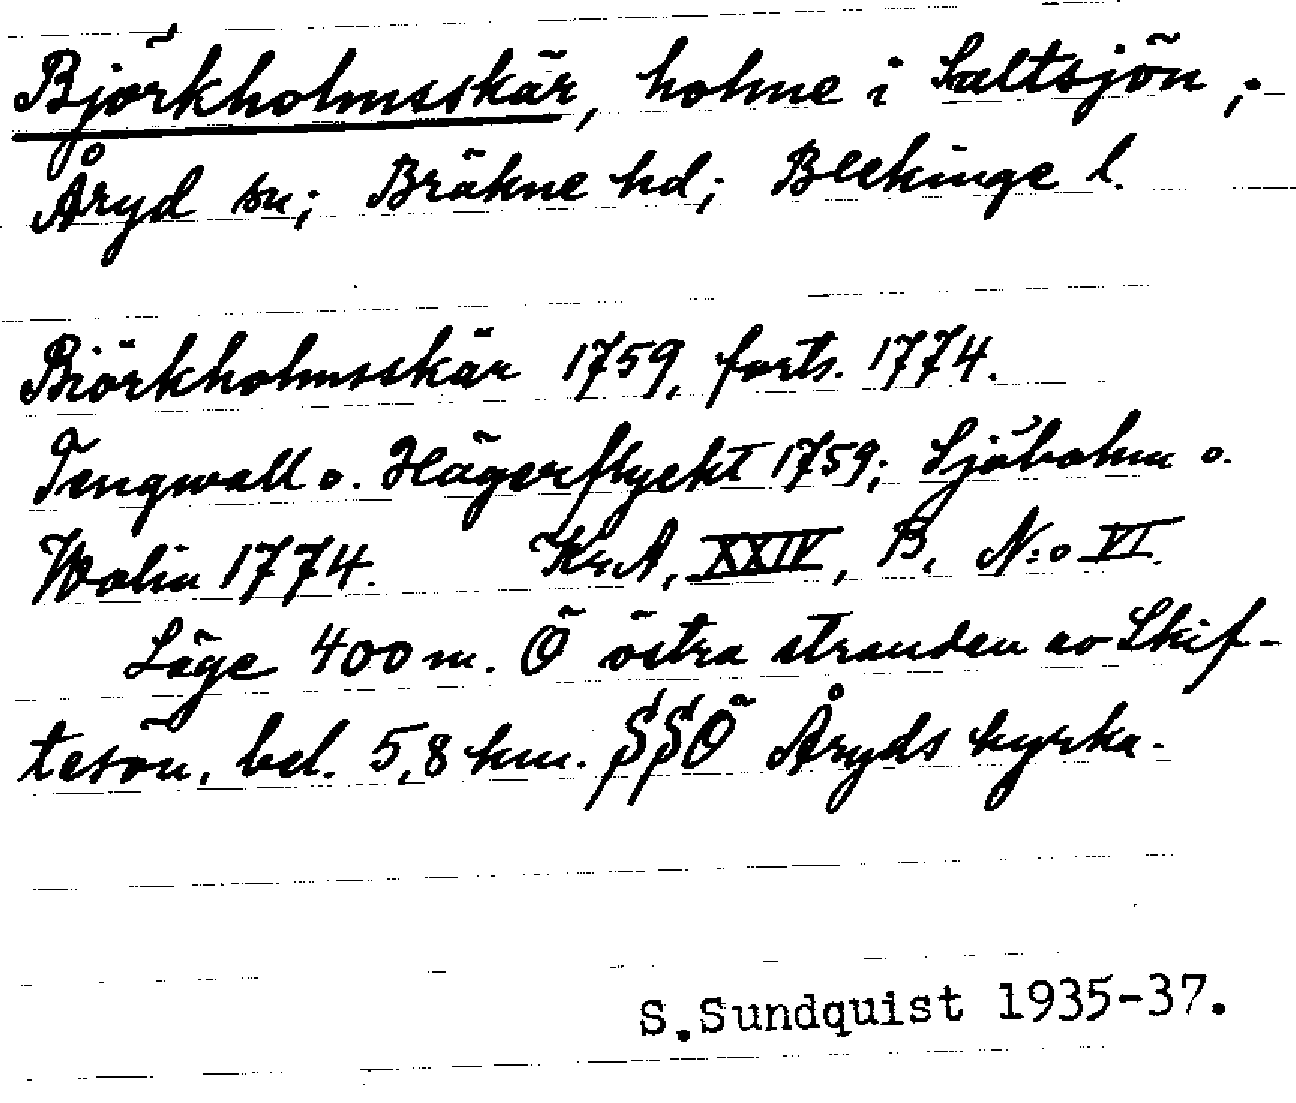 Björkholmsskär, holme i Saltsjön;
Åryd sn; Bräkne hd; Blekinge l.
Biörkholmsskär 1759, forts. 1774.
Tengwall o. Hägerflyckt 1759; Sjöbohm o.
Wolin 1774. Kr.A, XXIV, B, N:o VI.
Läge 400 m. Ö östra stranden av Skif-
tesön, bel. 5,8 km. SSÖ Åryds kyrka.
S.Sundquist 1935-37.